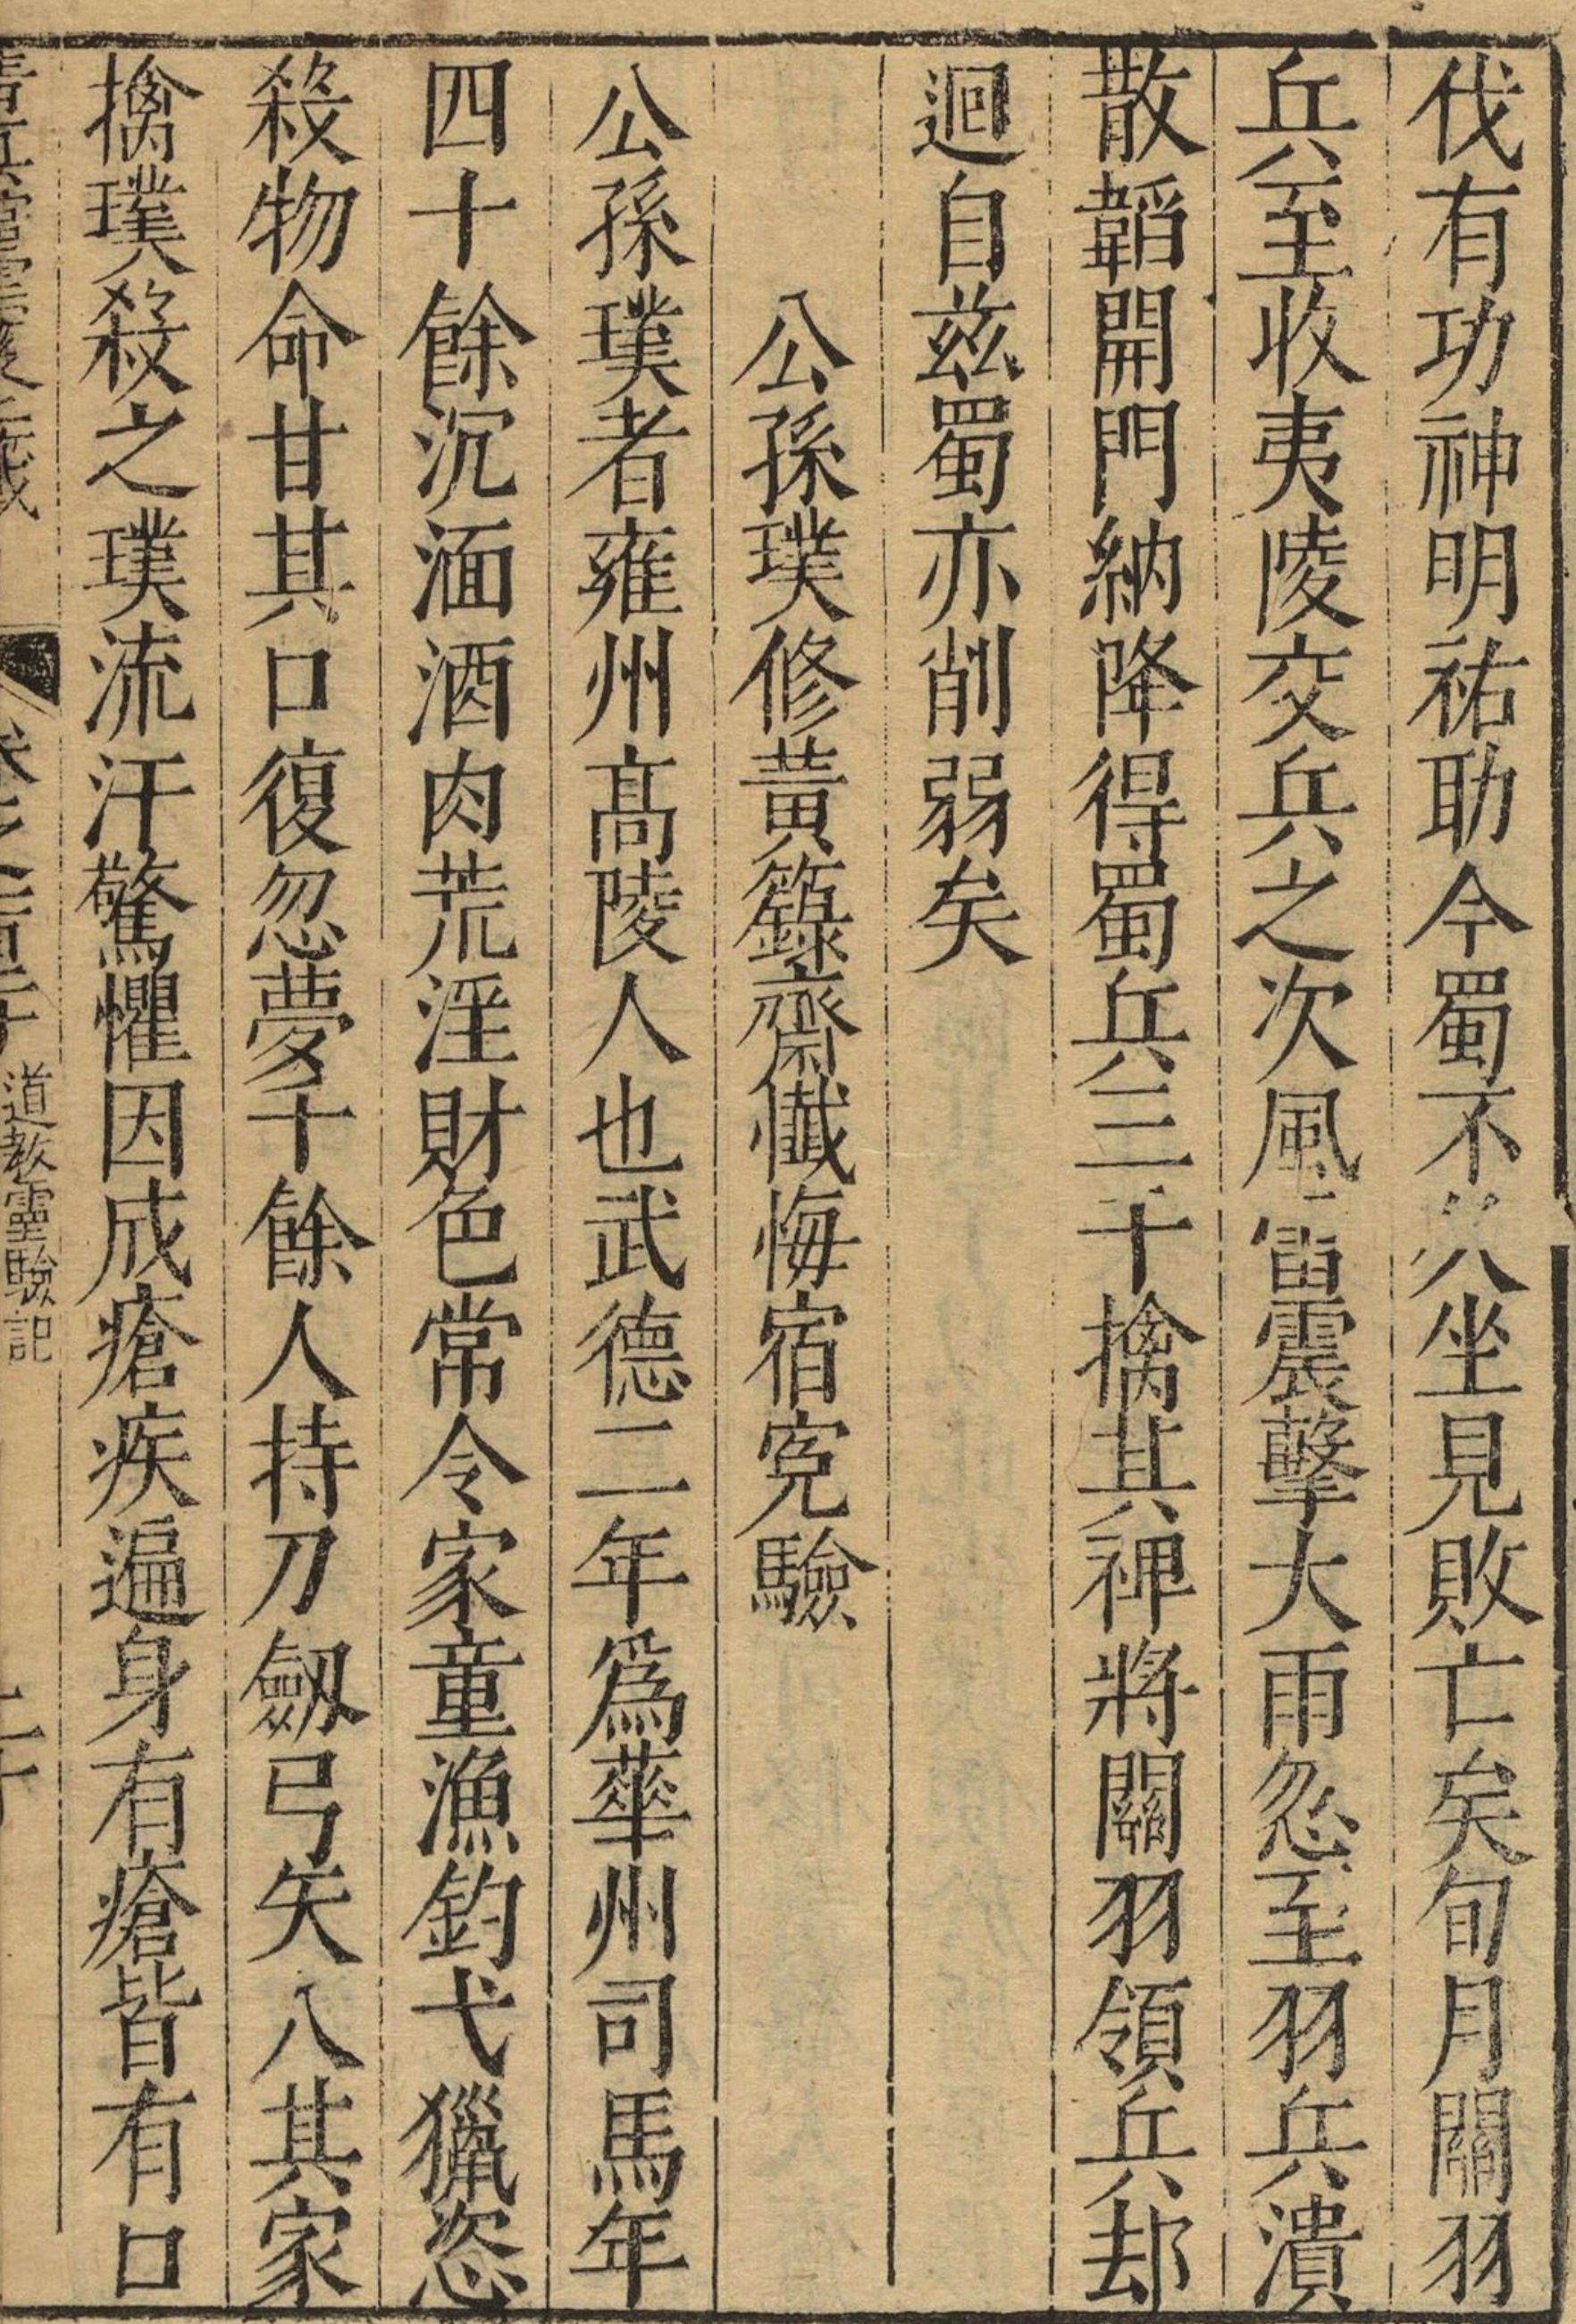 伐有功神明祐助今蜀不久坐見敗亡矣旬月關羽
兵至收夷陵交兵之次風雷震擊大雨忽至羽兵潰
散韜開門納降得蜀兵三千擒其裨將關羽領兵却
迴自兹蜀亦削弱矣
公孫璞修黃籙齋懺悔宿寃驗
公孫璞者雍州髙陵人也武德二年爲華州司馬年
四十餘沉湎酒肉荒淫財色常令家童漁釣弋獵恣
殺物命甘其口復忽夢千餘人持刀劔弓矢入其家
擒璞殺之璞流汗驚懼因成瘡疾遍身有瘡皆有口
道教靈驗記